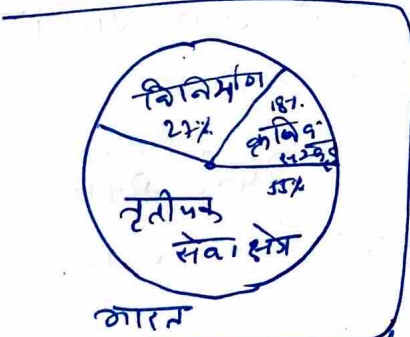 विनिर्माण
27%
18%
कृषि व
संबद्ध
55%
तृतीयक
सेवा क्षेत्र
भारत